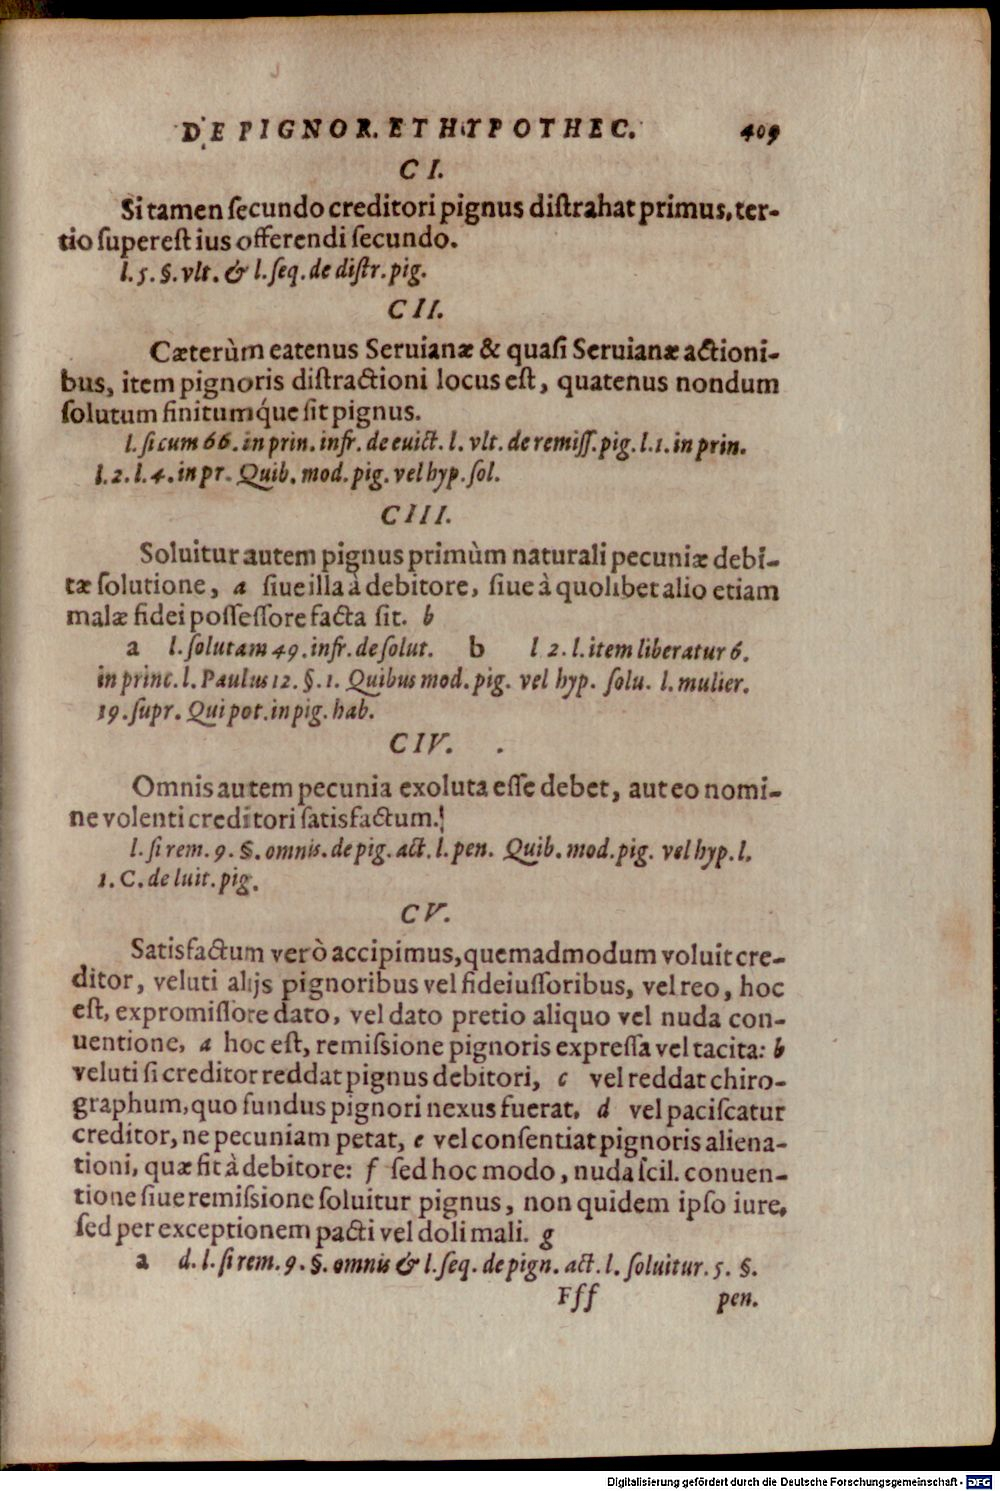 DE PIGNOR. ET HYPOTHEC. 409
CI.
Si tamen ſecundo creditori pignus diſtrahat primus, ter-
tio ſupereſt ius offerendi ſecundo.
l. 5. §. vlt. & l. ſeq. de diſtr. pig.
CII.
Cæterùm eatenus Seruianæ & quaſi Seruianæ actioni-
bus, item pignoris diſtractioni locus eſt, quatenus nondum
ſolutum finitumq́ue ſit pignus.
l. ſi cum 66. in prin. infr. de euict. l. vlt. de remiſſ. pig. l. 1. in prin.
l. 2. l. 4. in pr. Quib. mod. pig. vel hyp. ſol.
CIII.
Soluitur autem pignus primùm naturali pecuniæ debi-
tæ ſolutione, a ſiue illa à debitore, ſiue à quolibet alio etiam
malæ fidei poſſeſſore facta ſit. b
a l. ſolutam 49. infr. de ſolut. b l 2. l. item liberatur 6.
in princ. l. Paulus 12. §. 1. Quibus mod. pig. vel hyp. ſolu. l. mulier.
19. ſupr. Qui pot. in pig. hab.
CIV.
Omnis autem pecunia exoluta eſſe debet, aut eo nomi-
ne volenti creditori ſatisfactum.
l. ſi rem. 9. §. omnis. de pig. act. l. pen. Quib. mod. pig. vel hyp. l.
1. C. de luit. pig.
CV.
Satisfactum verò accipimus, quemadmodum voluit cre-
ditor, veluti alijs pignoribus vel fideiuſſoribus, vel reo, hoc
eſt, expromiſſore dato, vel dato pretio aliquo vel nuda con-
uentione, a hoc eſt, remiſsione pignoris expreſſa vel tacita: b
veluti ſi creditor reddat pignus debitori, c vel reddat chiro-
graphum, quo fundus pignori nexus fuerat, d vel paciſcatur
creditor, ne pecuniam petat, e vel conſentiat pignoris aliena-
tioni, quæ fit à debitore: f ſed hoc modo, nuda ſcil. conuen-
tione ſiue remiſsione ſoluitur pignus, non quidem ipſo iure,
ſed per exceptionem pacti vel doli mali. g
a d. l. ſi rem. 9. §. omnis & l. ſeq. de pign. act. l. ſoluitur. 5. §.
Fff pen.
Digitalisierung gefördert durch die Deutsche Forschungsgemeinschaft - DFG